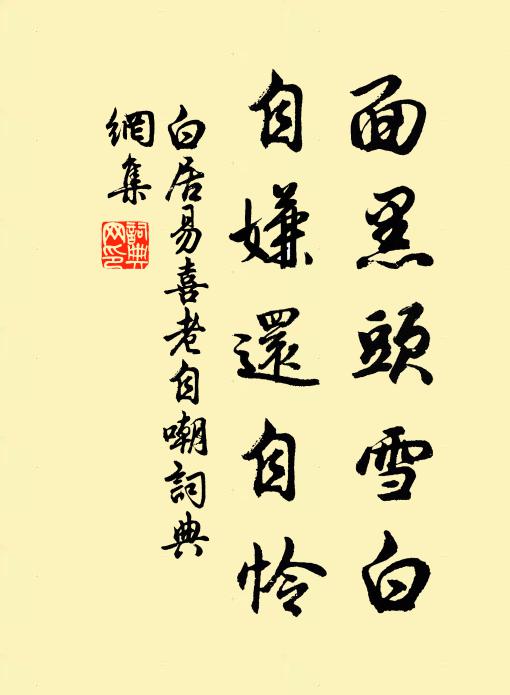 面黑頭雪白
自嫌還自怜
白居易喜老自嘲詞典
網集
詞典
网印